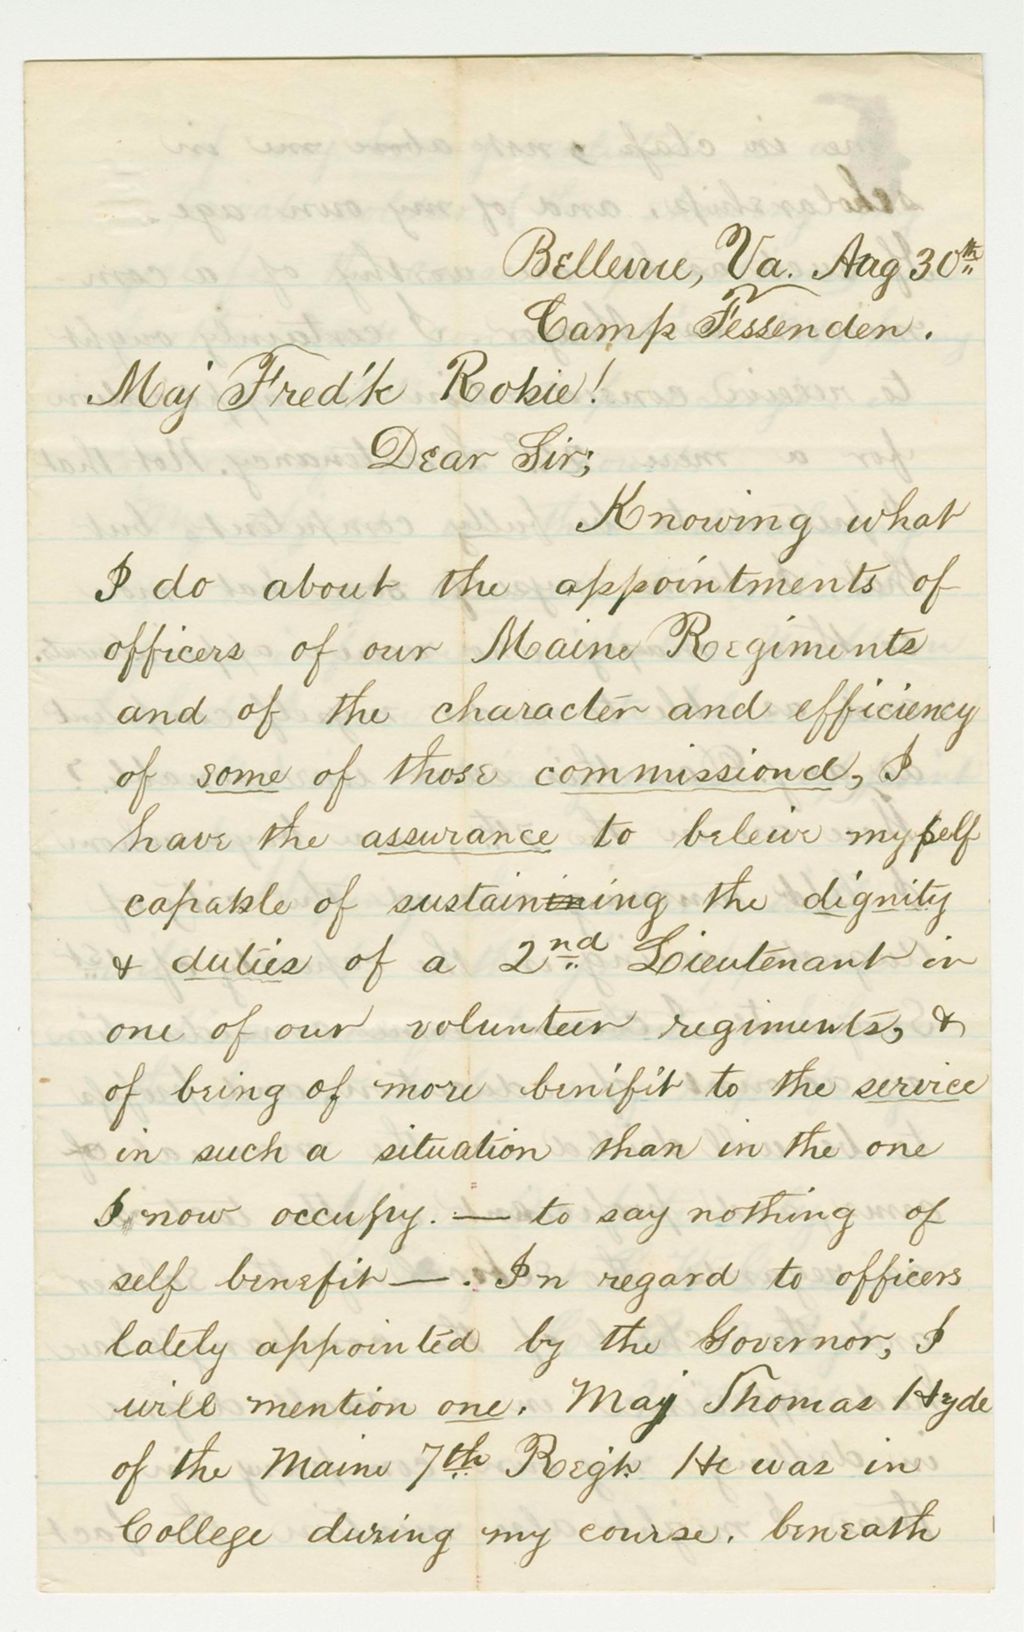 Bellevue, Va. Aug 30th
Camp Fessenden.
Maj Fred'k Robie!
Dear Sir;
Knowing what
I do about the appointments of
officers of our Maine Regiments
and of the character and efficiency
of some of those commissiond, I
have the assurance to beleive myself
capable of sustaininining the dignity
& duties of a 2nd Lieutenant in
one of our volunteer regiments, &
of being of more benifit to the service
in such a situation than in the one
I now occupy. — to say nothing of
self benefit —. In regard to officers
lately appointed by the Governor, I
will mention one. Maj Thomas Hyde
of the Maine 7th Regt. He was in
College during my course. beneath